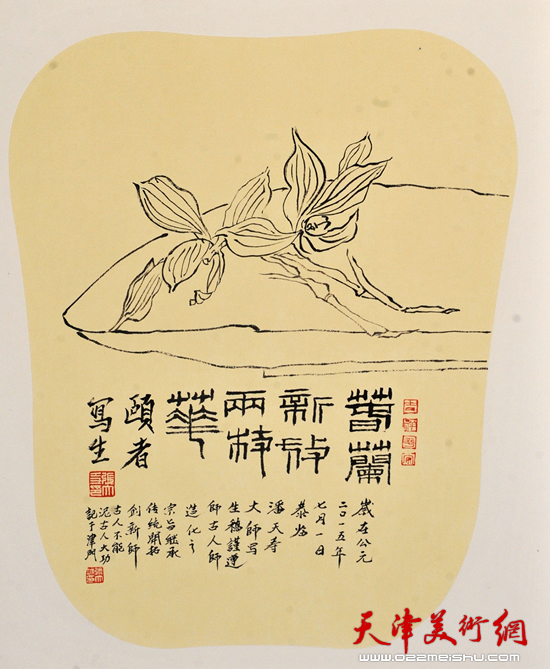 蕙蘭
新放
兩枝
華
頤者
寫生
歲在公元
二〇一五年
七月一日
恭為
潘天壽
大師寫
生稿謹遵
師古人師
造化之
宗旨繼承
傳統開拓
創新師
古人不能
泥古人大功
記于津門
天津美術網
www.022meishu.com